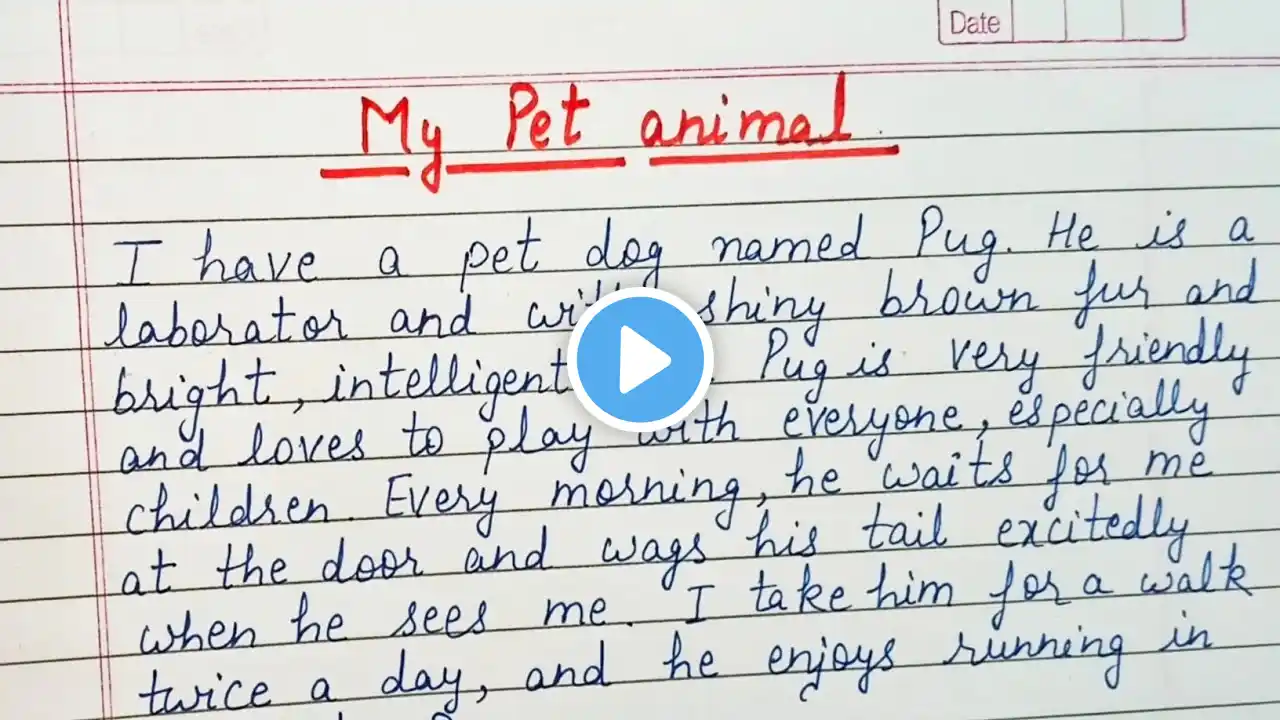 Date
My Pet animal
I have a pet dog named Pug. He is a
laborator and with shiny brown fur and
bright, intelligent Pug is very friendly
and loves to play with everyone, especially
children. Every morning, he waits for me
at the door and wags his tail excitedly
when he sees me. I take him for a walk
twice a day, and he enjoys running in